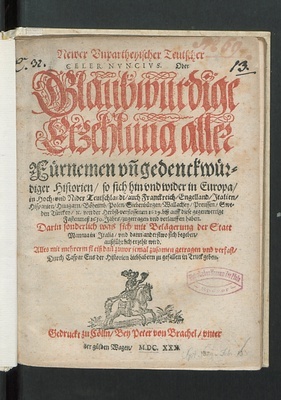 Newer Unpartheyischer Teutscher
CELER NVNCIVS. Oder
Glaubwürdige
Erzehlung aller
Fürnemen uñ gedenckwür-
diger Historien / so sich hin und wider in Europa /
in Hoch und Nider Teutschlandt / auch Franckreich / Engelland / Italien /
Hispanien / Hungarn / Böhemen / Polen / Siebenbürgen / Wallachey / Preussen /
Türckey / &c. von der Herbstmeß 1629. biß auff diese gegenwertige
Fastenmeß 1630. Jahrs / zugetragen und verlauffen haben.
Darin sonderlich was sich mit Belägerung der Statt
Mantua in Italia / und dann anderstwo sich begeben /
außführlich erzehlt wird.
Alles mit mehrerm fleiß dañ zuvor jemal zusamen getragen und verfast /
Durch Caspar Ens der Historien liebhabern zu gefallen in Truck geben.
Gedruckt zu Cölln / Bey Peter von Brachel / unter
der gülden Wagen / M.DC. XXX.
13.